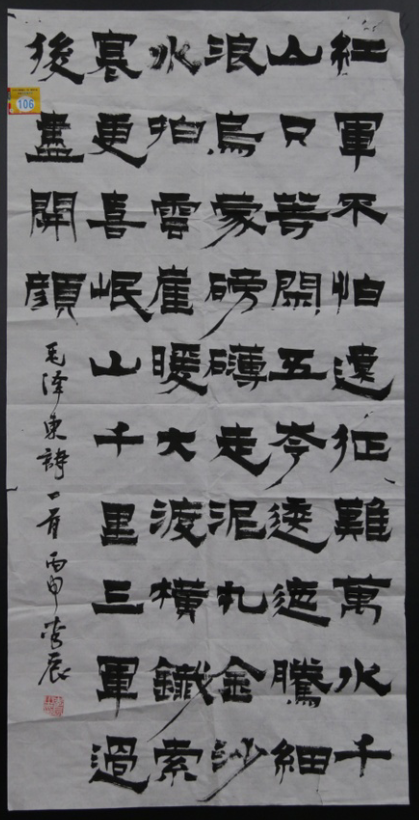 紅軍不怕遠征難萬水千
山只等閑五岺逶迤騰細
浪烏蒙磅礴走泥丸金沙
水拍雲崖暖大渡橫鐵索
寒更喜岷山千里三軍過
後盡開顏
毛澤東詩一首丙申
106